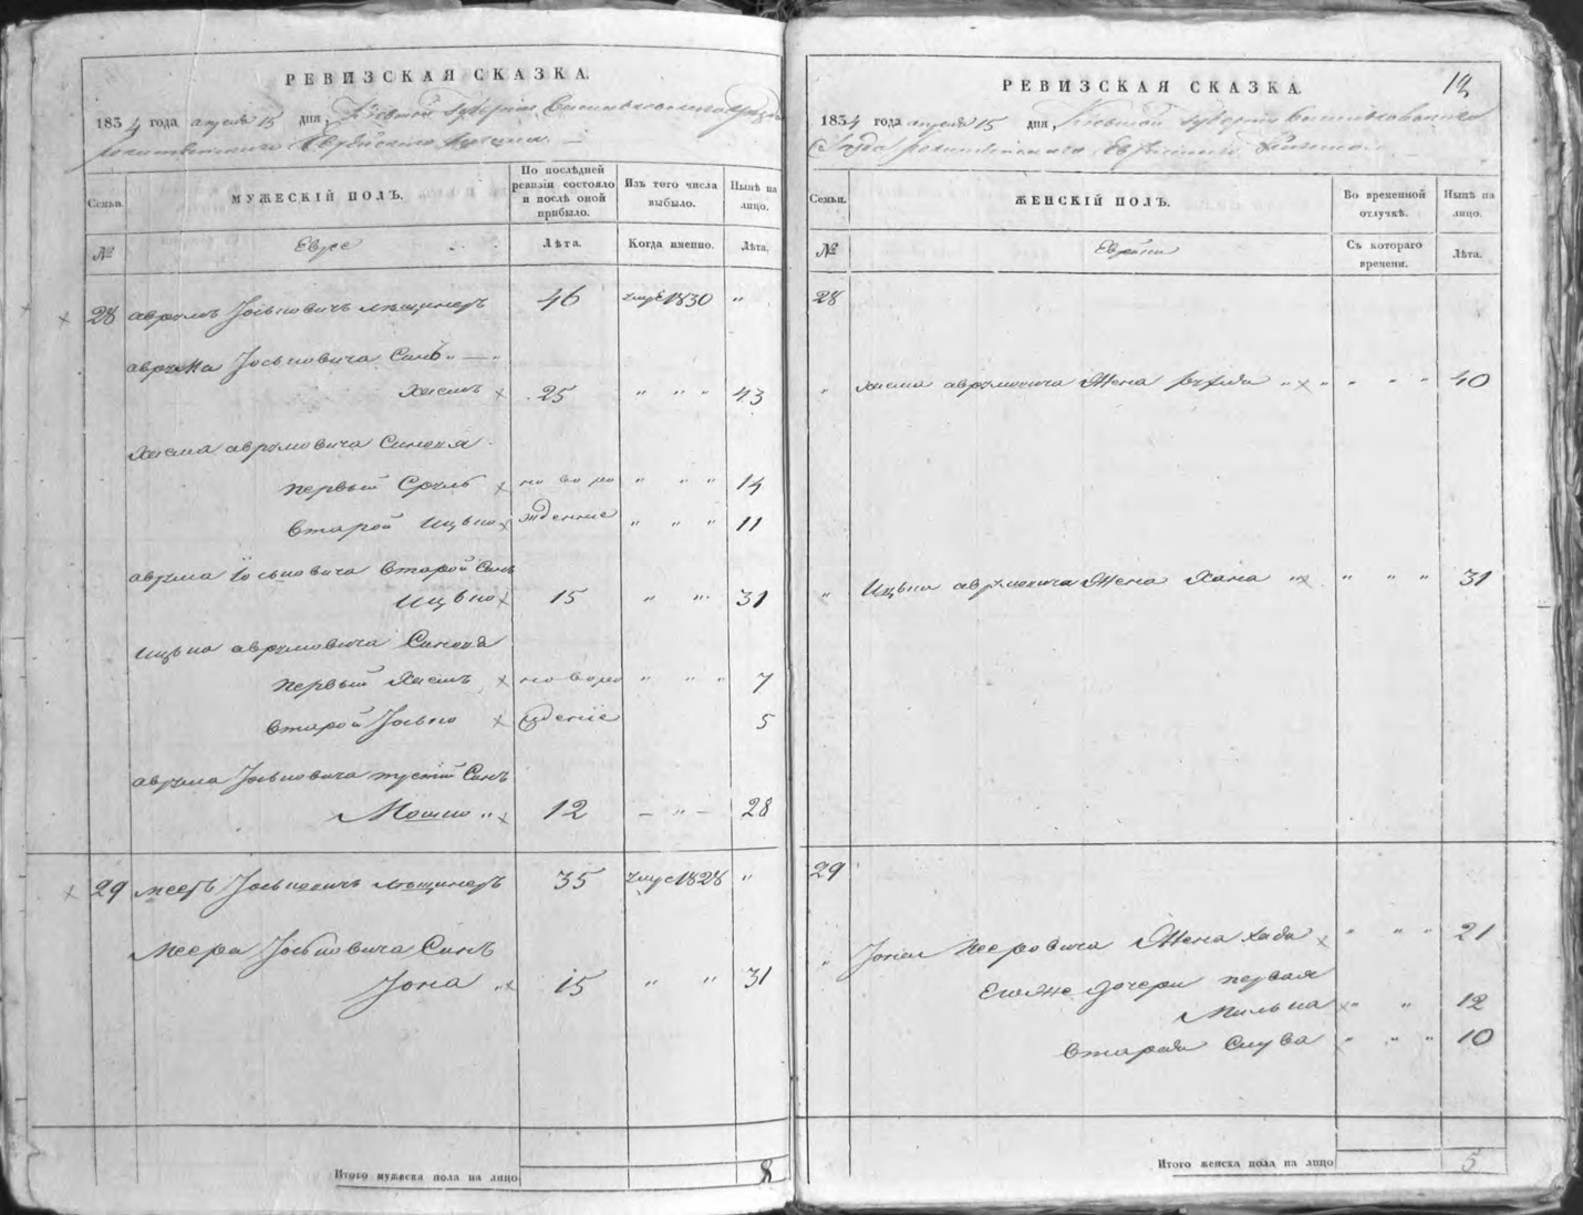 РЕВИЗСКАЯ СКАЗКА.
1834 года апреля 15 дня, Киевской Губернии Васильковского уезда
Еврейского
Семьи.
МУЖЕСКІЙ ПОЛЪ.
По послѣдней ревизіи состояло и послѣ оной прибыло.
Изъ того числа выбыло.
Нынѣ на лицо.
№
Евреи
Лѣта.
Когда именно.
Лѣта.
28 Аврумъ Іосьповичъ Лещинеръ 46 1830 "
Аврума Іосьповича Синъ " — "
Хаимъ × 25 " " " 43
Хаима Аврумовича Синовя
Первый Сруль × но во ро " " " 14
Второй Ицько × ждение " " " 11
Аврума Іосьповича Второй Синъ
Ицько × 15 " " 31
Ицька Аврумовича Синовя
Первый Хаимъ × но во ро " " " 7
Второй Іосьпо × ждение 5
Аврума Іосьповича третій Синъ
Мошко " × 12 — " — 28
× 29 Мееръ Іосьповичъ Лещинеръ 35 1828 "
Меера Іосьповича Синъ
Іона " × 15 " " 31
Итого мужеска пола на лицо 8
РЕВИЗСКАЯ СКАЗКА.
1834 года апреля 15 дня, Киевской Губернии Васильковского
Еврейского
Семьи.
ЖЕНСКІЙ ПОЛЪ.
Во временной отлучкѣ.
Нынѣ на лицо.
№
Еврейки
Съ котораго времени.
Лѣта.
28
" Хаима Аврумовича Жена " × " " " " 40
" Ицька Аврумовича Жена Хана " × " " " 31
29
" Іони Мееровича Жена × " " " 21
Его же дочери первая
Милька × " " 12
Вторая " " " 10
Итого женска пола на лицо 5